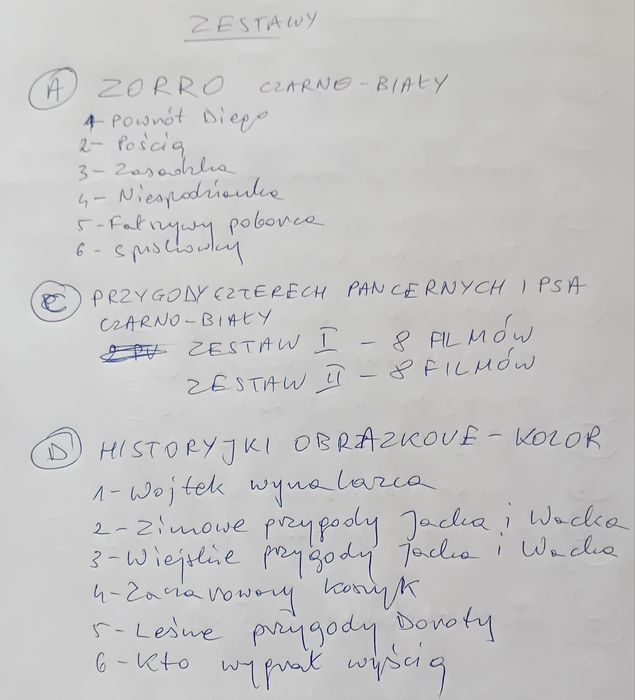 ZESTAWY
A ZORRO CZARNO-BIAŁY
1- Powrót Diego
2- Pościg
3- Zasadzka
4- Niespodzianka
5- Fałszywy poborca
6- Spiskowcy
C PRZYGODY CZTERECH PANCERNYCH I PSA
CZARNO-BIAŁY
ZESTAW I - 8 FILMÓW
ZESTAW II - 8 FILMÓW
D HISTORYJKI OBRAZKOWE - KOLOR
1- Wojtek wynalazca
2- Zimowe przygody Jacka i Wacka
3- Wiejskie przygody Jacka i Wacka
4- Zaczarowany koszyk
5- Leśne przygody Doroty
6- Kto wygrał wyścig